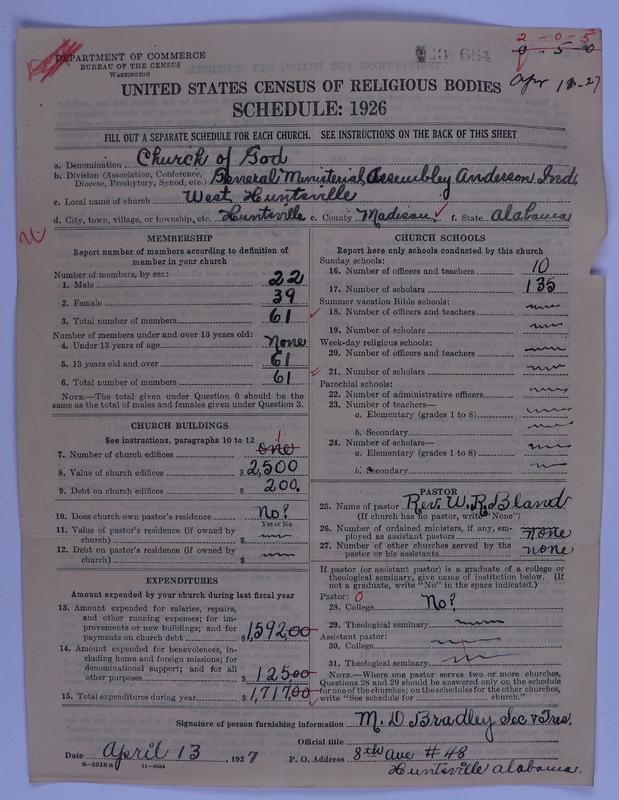 2-0-5
DEPARTMENT OF COMMERCE
BUREAU OF THE CENSUS
WASHINGTON
0-5-0
UNITED STATES CENSUS OF RELIGIOUS BODIES
SCHEDULE: 1926
FILL OUT A SEPARATE SCHEDULE FOR EACH CHURCH. SEE INSTRUCTIONS ON THE BACK OF THIS SHEET
a. Denomination Church of God
b. Division (Association, Conference, Diocese, Presbytery, Synod, etc.) General Ministerial Assembly Anderson Ind.
c. Local name of church West Huntsville
d. City, town, village, or township, etc. Huntsville e. County Madison f. State Alabama
MEMBERSHIP
Report number of members according to definition of
member in your church
Number of members, by sex:
1. Male 22
2. Female 39
3. Total number of members 61
Number of members under and over 13 years old:
4. Under 13 years of age None
5. 13 years old and over 61
6. Total number of members 61
NOTE.—The total given under Question 6 should be
same as the total of males and females given under Question 3.
CHURCH BUILDINGS
See instructions, paragraphs 10 to 12
1
7. Number of church edifices one
8. Value of church edifices $2,500
9. Debt on church edifices $200.
10. Does church own pastor's residence? No?
Yes or No
11. Value of pastor's residence (if owned by
church) $
12. Debt on pastor's residence (if owned by
church) $
EXPENDITURES
Amount expended by your church during last fiscal year
13. Amount expended for salaries, repairs,
and other running expenses; for im-
provements or new buildings; and for
payments on church debt $1,592,00
14. Amount expended for benevolences, in-
cluding home and foreign missions; for
denominational support; and for all
other purposes $125,00
15. Total expenditures during year $1,717,00
CHURCH SCHOOLS
Report here only schools conducted by this church
Sunday schools:
16. Number of officers and teachers 10
17. Number of scholars 135
Summer vacation Bible schools:
18. Number of officers and teachers
19. Number of scholars
Week-day religious schools:
20. Number of officers and teachers
21. Number of scholars
Parochial schools:
22. Number of administrative officers
23. Number of teachers—
a. Elementary (grades 1 to 8)
b. Secondary
24. Number of scholars—
a. Elementary (grades 1 to 8)
b. Secondary
PASTOR
25. Name of pastor Rev. W. R. Bland
(If church has no pastor, write "None")
26. Number of ordained ministers, if any, em-
ployed as assistant pastors none
27. Number of other churches served by the
pastor or his assistants none
If pastor (or assistant pastor) is a graduate of a college or
theological seminary, give name of institution below. (If
not a graduate, write "No" in the space indicated.)
Pastor: 0
28. College No?
29. Theological seminary
Assistant pastor:
30. College
31. Theological seminary
NOTE.—Where one pastor serves two or more churches,
Questions 28 and 29 should be answered only on the schedule
for one of the churches; on the schedules for the other churches,
write "See schedule for church."
Signature of person furnishing information M. D. Bradley Sec & Tres.
Official title
Date April 13, 1927 P. O. Address 8th Ave #48
8—5518a 11—9354
Huntsville Alabama.